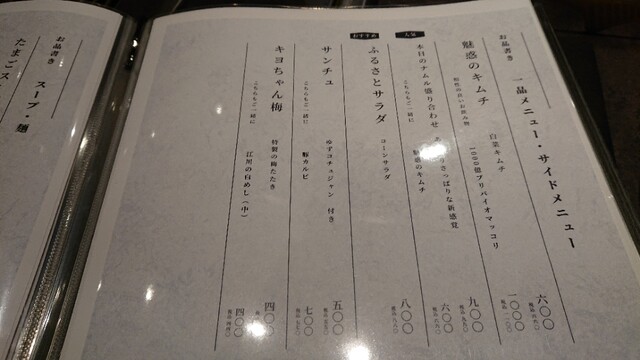 お品書き 一品メニュー・サイドメニュー
魅惑のキムチ 白菜キムチ 六〇〇
相性の良いお飲み物 1000億プリバイオマッコリ 一〇〇〇
人気
本日のナムル盛り合わせ さっぱりな新感覚 九〇〇
こちらもご一緒に 魅惑のキムチ 六〇〇
おすすめ
ふるさとサラダ コーンサラダ 八〇〇
サンチュ ゆずコチュジャン 付き 五〇〇
こちらもご一緒に 豚カルビ 七〇〇
キヨちゃん梅 特製の梅たたき 四〇〇
こちらもご一緒に 江川の白めし(中) 四〇〇
お品書き スープ・麺
たまごス